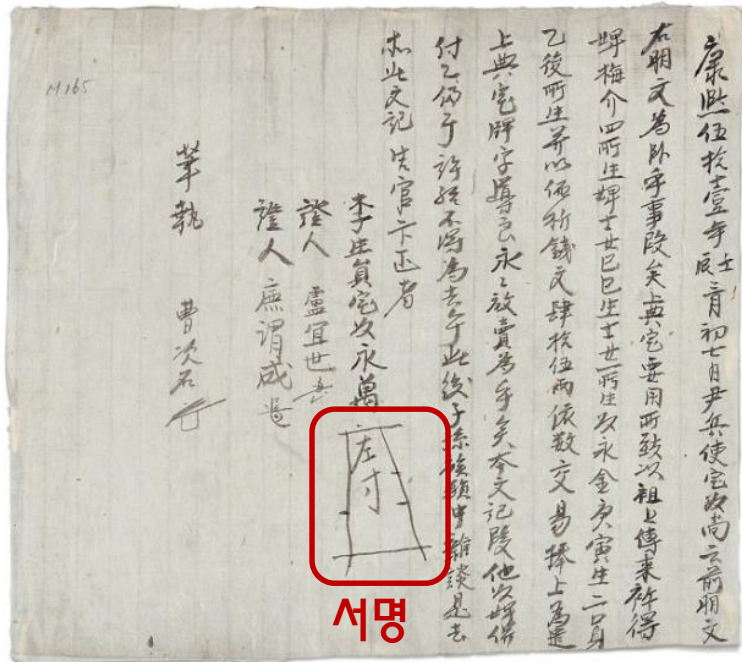 康熙伍拾壹年壬辰二月初七日尹兵使宅奴尚云前明文
右明文為臥乎事段矣上典宅要用所致以祖上傳來衿得
婢梅介四所生婢士女己巳生士女一所生奴永金庚寅生二口身
乙後所生并以価折錢文肆拾伍兩依数交易捧上為遣
上典宅牌字導良永永放賣為乎矣本文記段他奴婢并
付乙仍于許給不得為去乎此後子孫族類中雜談是去
等此文記告官卞正者
李生員宅奴永萬
左寸
證人 盧宜世
證人 成
筆執 曺次石
M165
서명